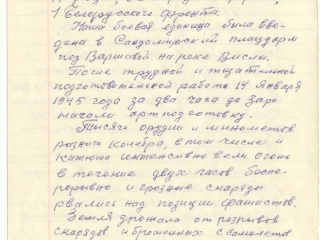 1 Белорусского фронта.
Наша боевая единица была вве-
дена в Сандомирский плацдарм
под Варшавой на реке Висла.
После трудной и тщательной
подготовительной работе 14 января
1945 года за два часа до зари
начали артподготовку.
Тысячи орудий и минометов
разного калибра, в том числе и
катюши интенсивно вели огонь
в течение двух часов беспе-
рерывно и грозные снаряды
рвались над позиции фашистов.
Земля дрожала от разрывов
снарядов и брошенных с самолета